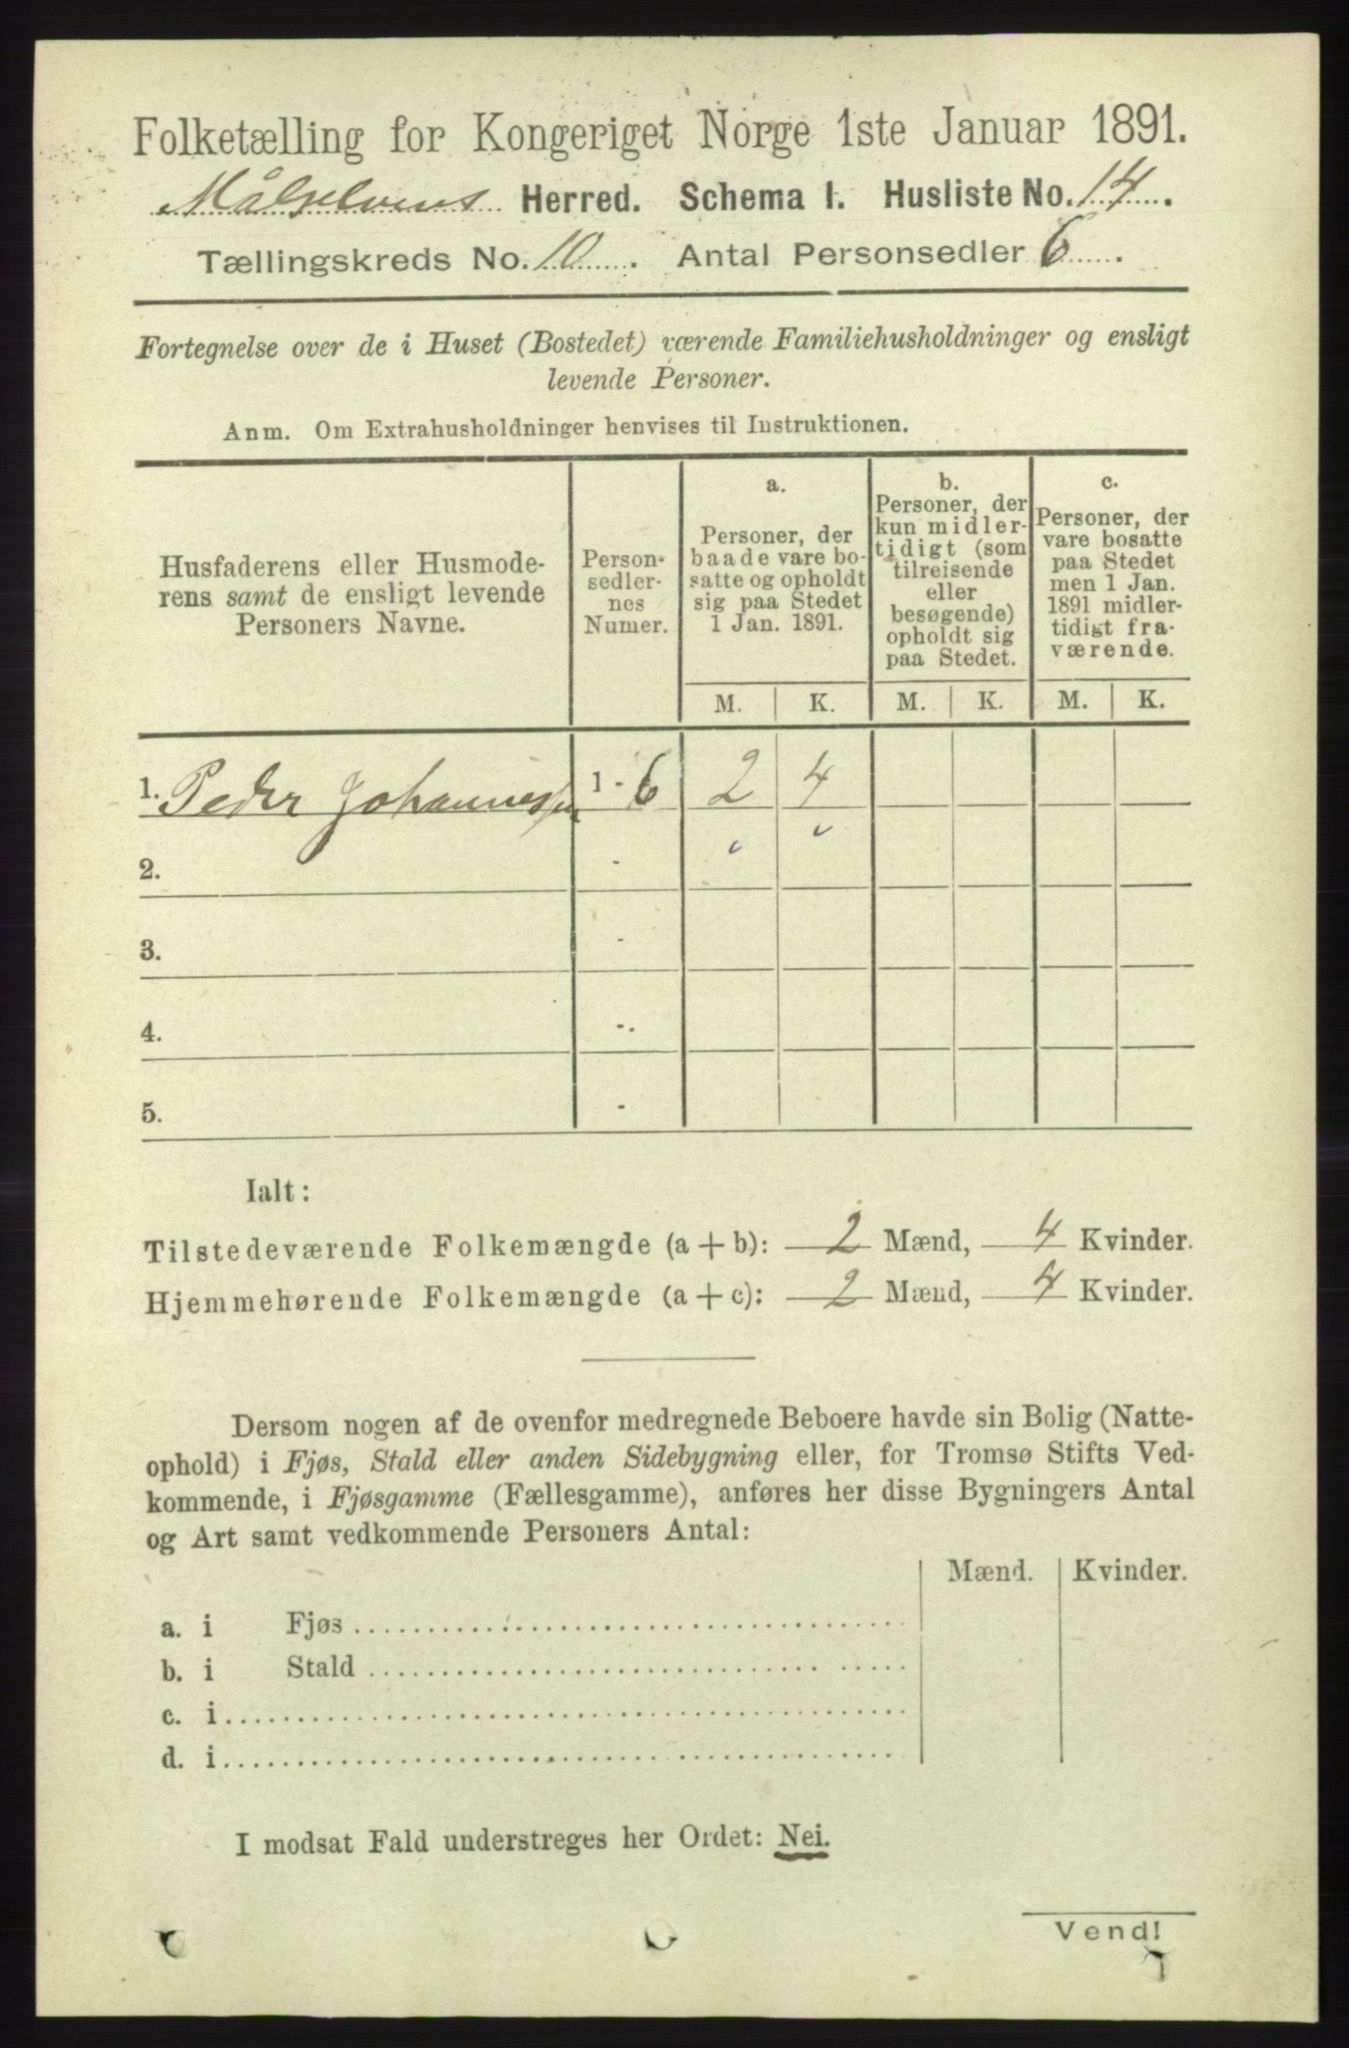 Folketælling for Kongeriget Norge 1ste Januar 1891.
Målselvens Herred. Schema I. Husliste No. 14.
Tællingskreds No. 10. Antal Personsedler 6.
Fortegnelse over de i Huset (Bostedet) værende Familiehusholdninger og ensligt
levende Personer.
Anm. Om Extrahusholdninger henvises til Instruktionen.
Husfaderens eller Husmode-
rens samt de ensligt levende
Personers Navne.
Person-
sedler-
nes
Numer.
a.
Personer, der
baade vare bo-
satte og opholdt
sig paa Stedet
1 Jan. 1891.
b.
Personer, der
kun midler-
tidigt (som
tilreisende
eller
besøgende)
opholdt sig
paa Stedet.
c.
Personer, der
vare bosatte
paa Stedet
men 1 Jan.
1891 midler-
tidigt fra-
værende.
M. K. M. K. M. K.
1. Peder Johannessen 1 - 6 2 4
2. -
3. -
4. -
5. -
Ialt:
Tilstedeværende Folkemængde (a + b): 2 Mænd, 4 Kvinder.
Hjemmehørende Folkemængde (a + c): 2 Mænd, 4 Kvinder.
Dersom nogen af de ovenfor medregnede Beboere havde sin Bolig (Natte-
ophold) i Fjøs, Stald eller anden Sidebygning eller, for Tromsø Stifts Ved-
kommende, i Fjøsgamme (Fællesgamme), anføres her disse Bygningers Antal
og Art samt vedkommende Personers Antal:
Mænd. Kvinder.
a. i Fjøs
b. i Stald
c. i
d. i
I modsat Fald understreges her Ordet: Nei.
Vend!